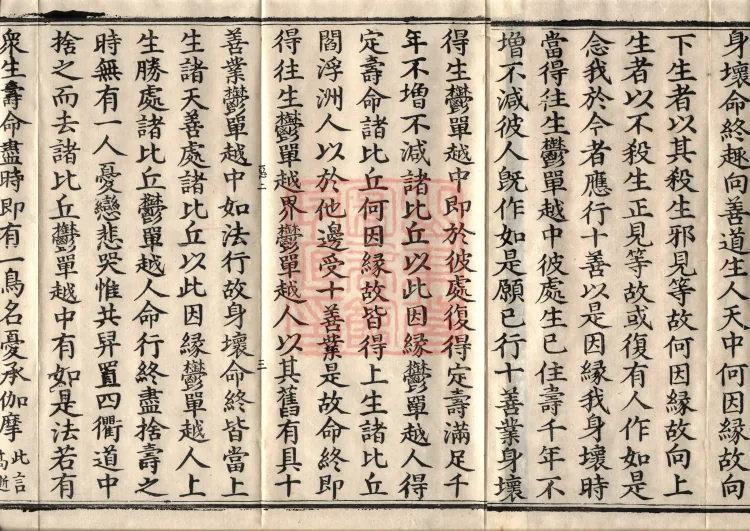 身壞命終趣向善道生人天中何因緣故向
下生者以其殺生邪見等故何因緣故向上
生者以不殺生正見等故或復有人作如是
念我於今者應行十善以是因緣我身壞時
當得往生鬱單越中彼處生已住壽千年不
增不減彼人既作如是願已行十善業身壞
得生鬱單越中即於彼處復得定壽滿足千
年不增不減諸比丘以此因緣鬱單越人得
定壽命諸比丘何因緣故皆得上生諸比丘
閻浮洲人以於他邊受十善業是故命終即
得往生鬱單越界鬱單越人以其舊有具十
三
善業鬱單越中如法行故身壞命終皆當上
生諸天善處諸比丘以此因緣鬱單越人上
生勝處諸比丘鬱單越人命行終盡捨壽之
時無有一人憂戀悲哭惟共舁置四衢道中
捨之而去諸比丘鬱單越中有如是法若有
衆生壽命盡時即有一鳥名憂承伽摩此言高逝